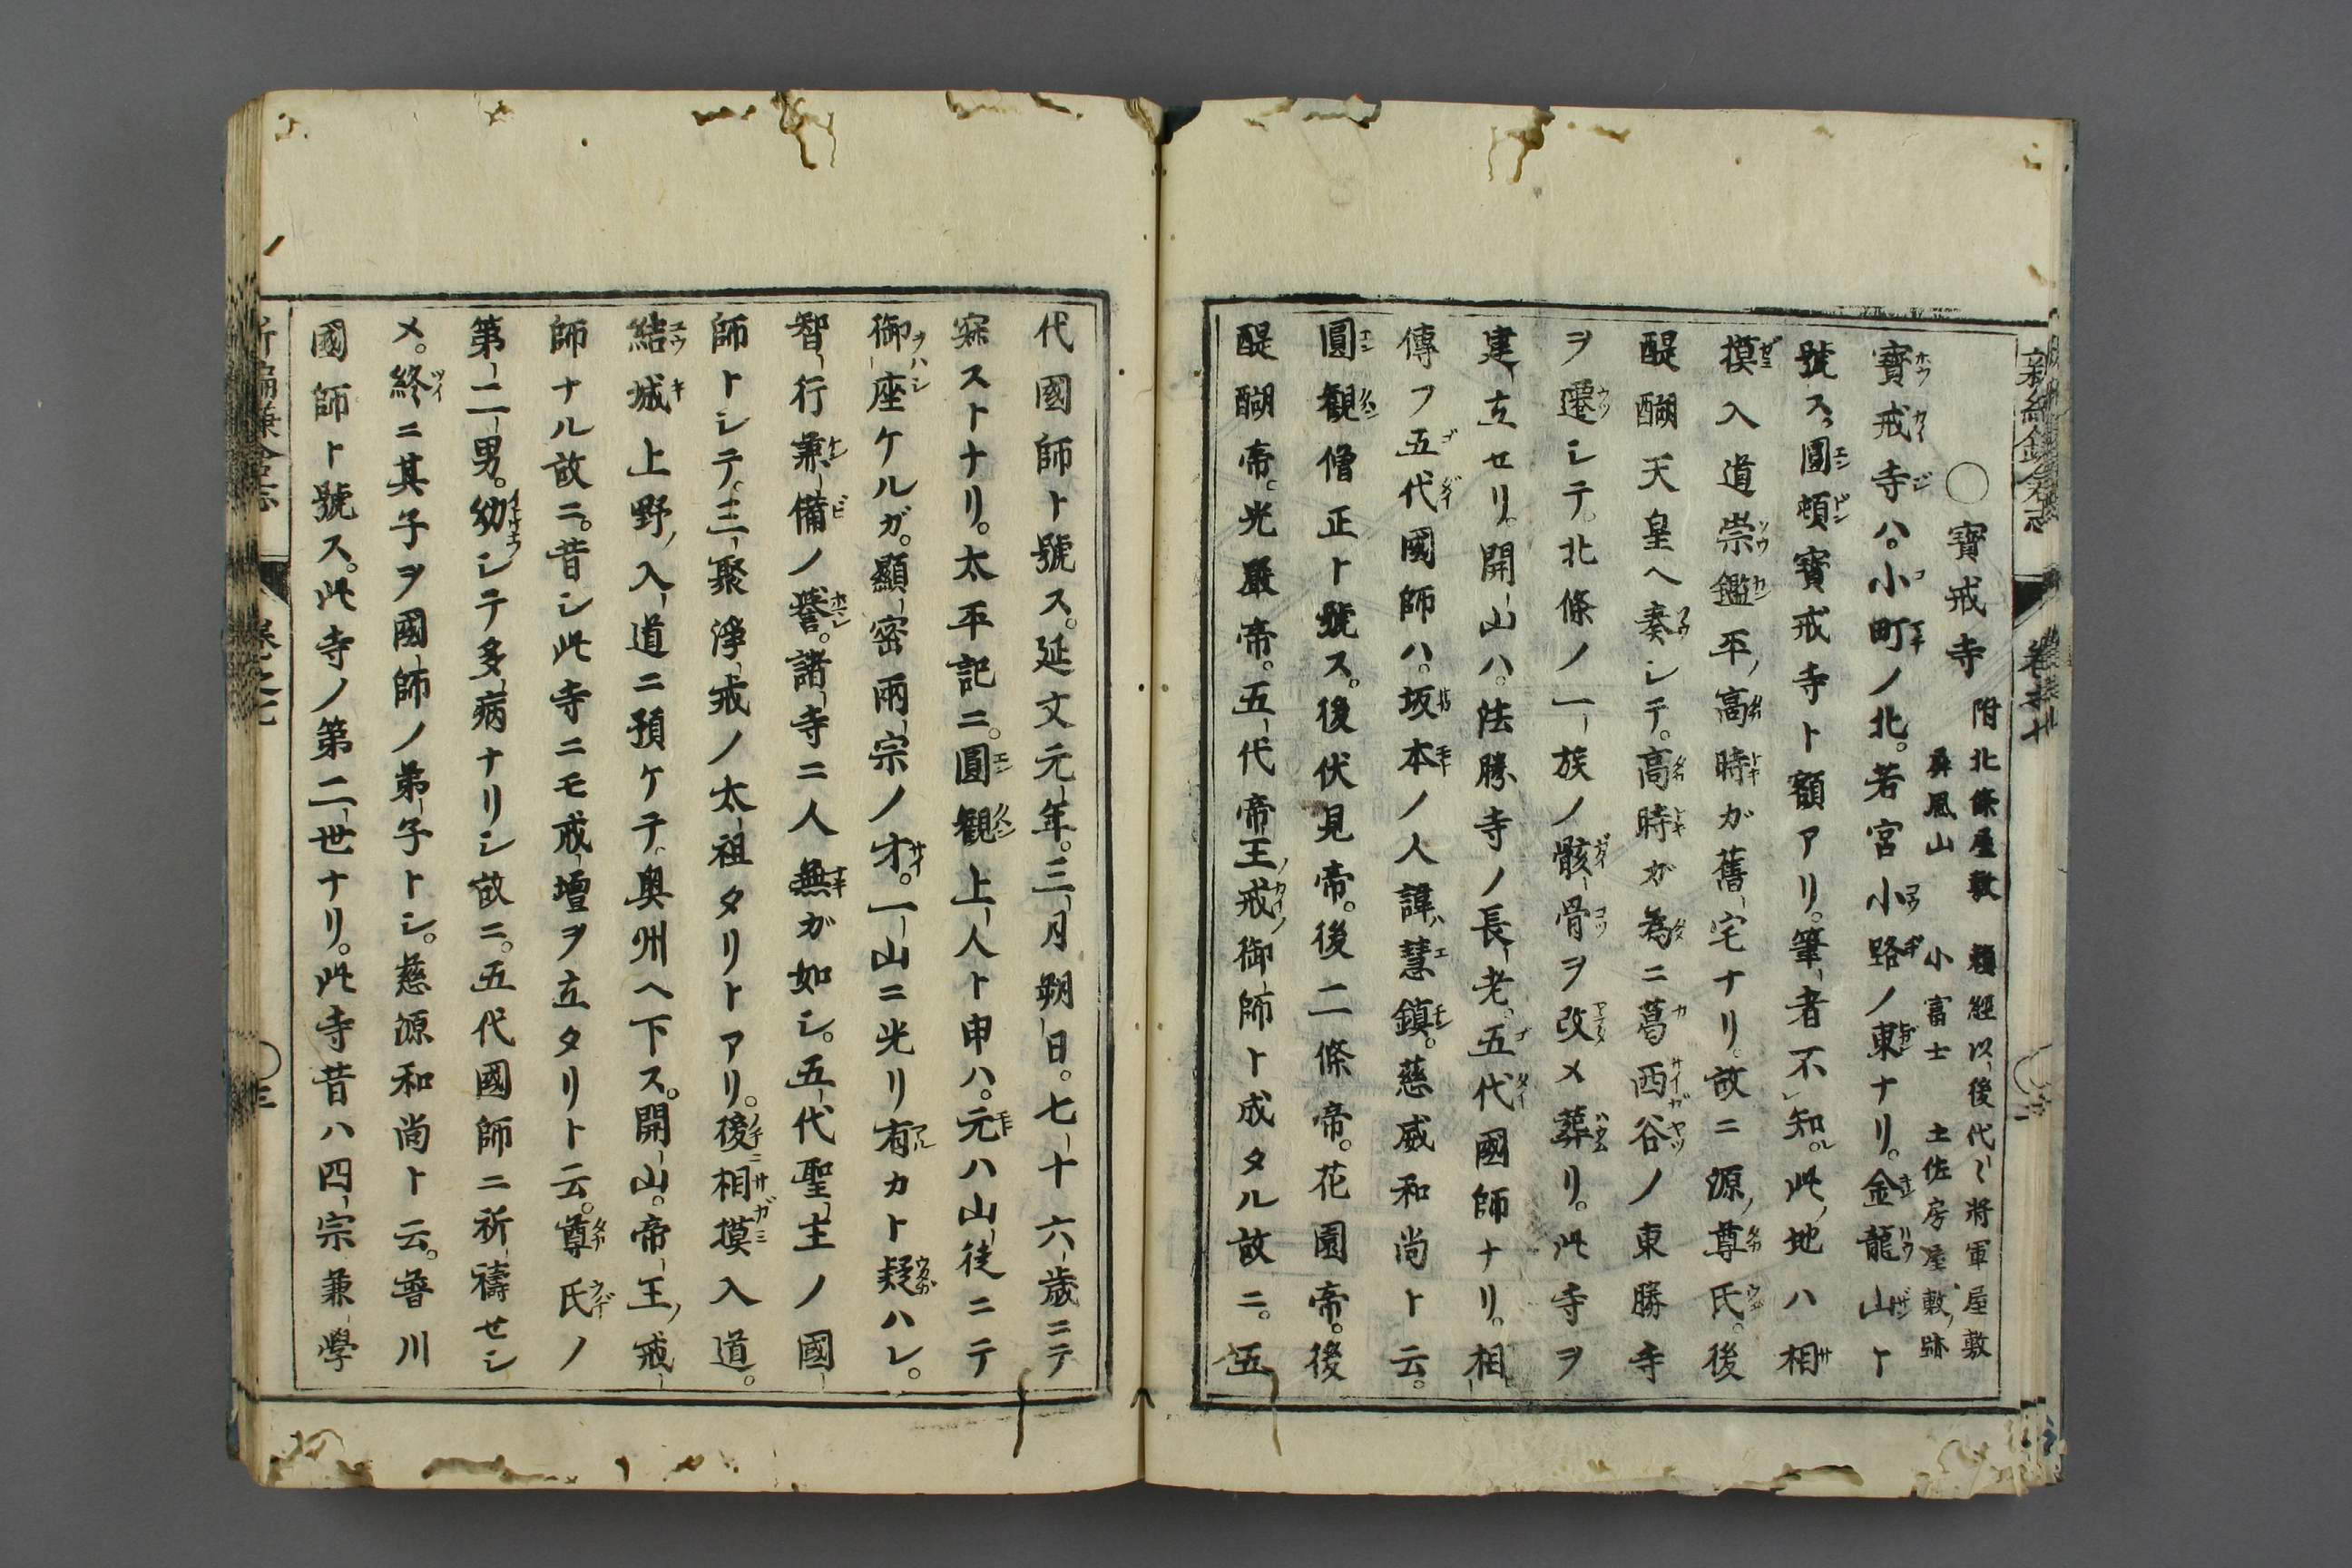 ○寶戒寺 附北條屋敷 頼經以後代々將軍屋敷 屏風山 小富士 土佐房屋敷跡
寶戒寺ハ。小町ノ北。若宮小路ノ東ナリ。金龍山ト
號ス。圓頓寶戒寺ト額アリ。筆者不知。此地ハ相
摸入道崇鑑平高時ガ舊宅ナリ。故ニ源尊氏。後
醍醐天皇ヘ奏シテ。高時ガ為ニ葛西谷ノ東勝寺
ヲ遷シテ。北條ノ一族ノ骸骨ヲ改メ葬リ。此寺ヲ
建立セリ。開山ハ。法勝寺ノ長老。五代國師ナリ。相
傳フ五代國師ハ。坂本ノ人諱慧鎮。慈威和尚ト云。
圓観僧正ト號ス。後伏見帝。後二條帝。花園帝。後
醍醐帝。光嚴帝。五代帝王戒御師ト成タル故ニ。五
代國師ト號ス。延文元年。三月朔日。七十六歳ニテ
寂ストナリ。太平記ニ。圓観上人ト申ハ。元ハ山徒ニテ
御座ケルガ。顯密兩宗ノ才。一山ニ光リ有カト疑ハレ。
智行兼備ノ譽。諸寺ニ人無ガ如シ。五代聖主ノ國
師トシテ。三聚淨戒ノ太祖タリトアリ。後相摸入道。
結城上野入道ニ預ケテ。奥州ヘ下ス。開山。帝王戒
師ナル故ニ。昔シ此寺ニモ戒壇ヲ立タリト云。尊氏ノ
第二男。幼シテ多病ナリシ故ニ。五代國師ニ祈禱セシ
メ。終ニ其子ヲ國師ノ弟子トシ。慈源和尚ト云。普川
國師ト號ス。此寺ノ第二世ナリ。此寺昔ハ四宗兼學